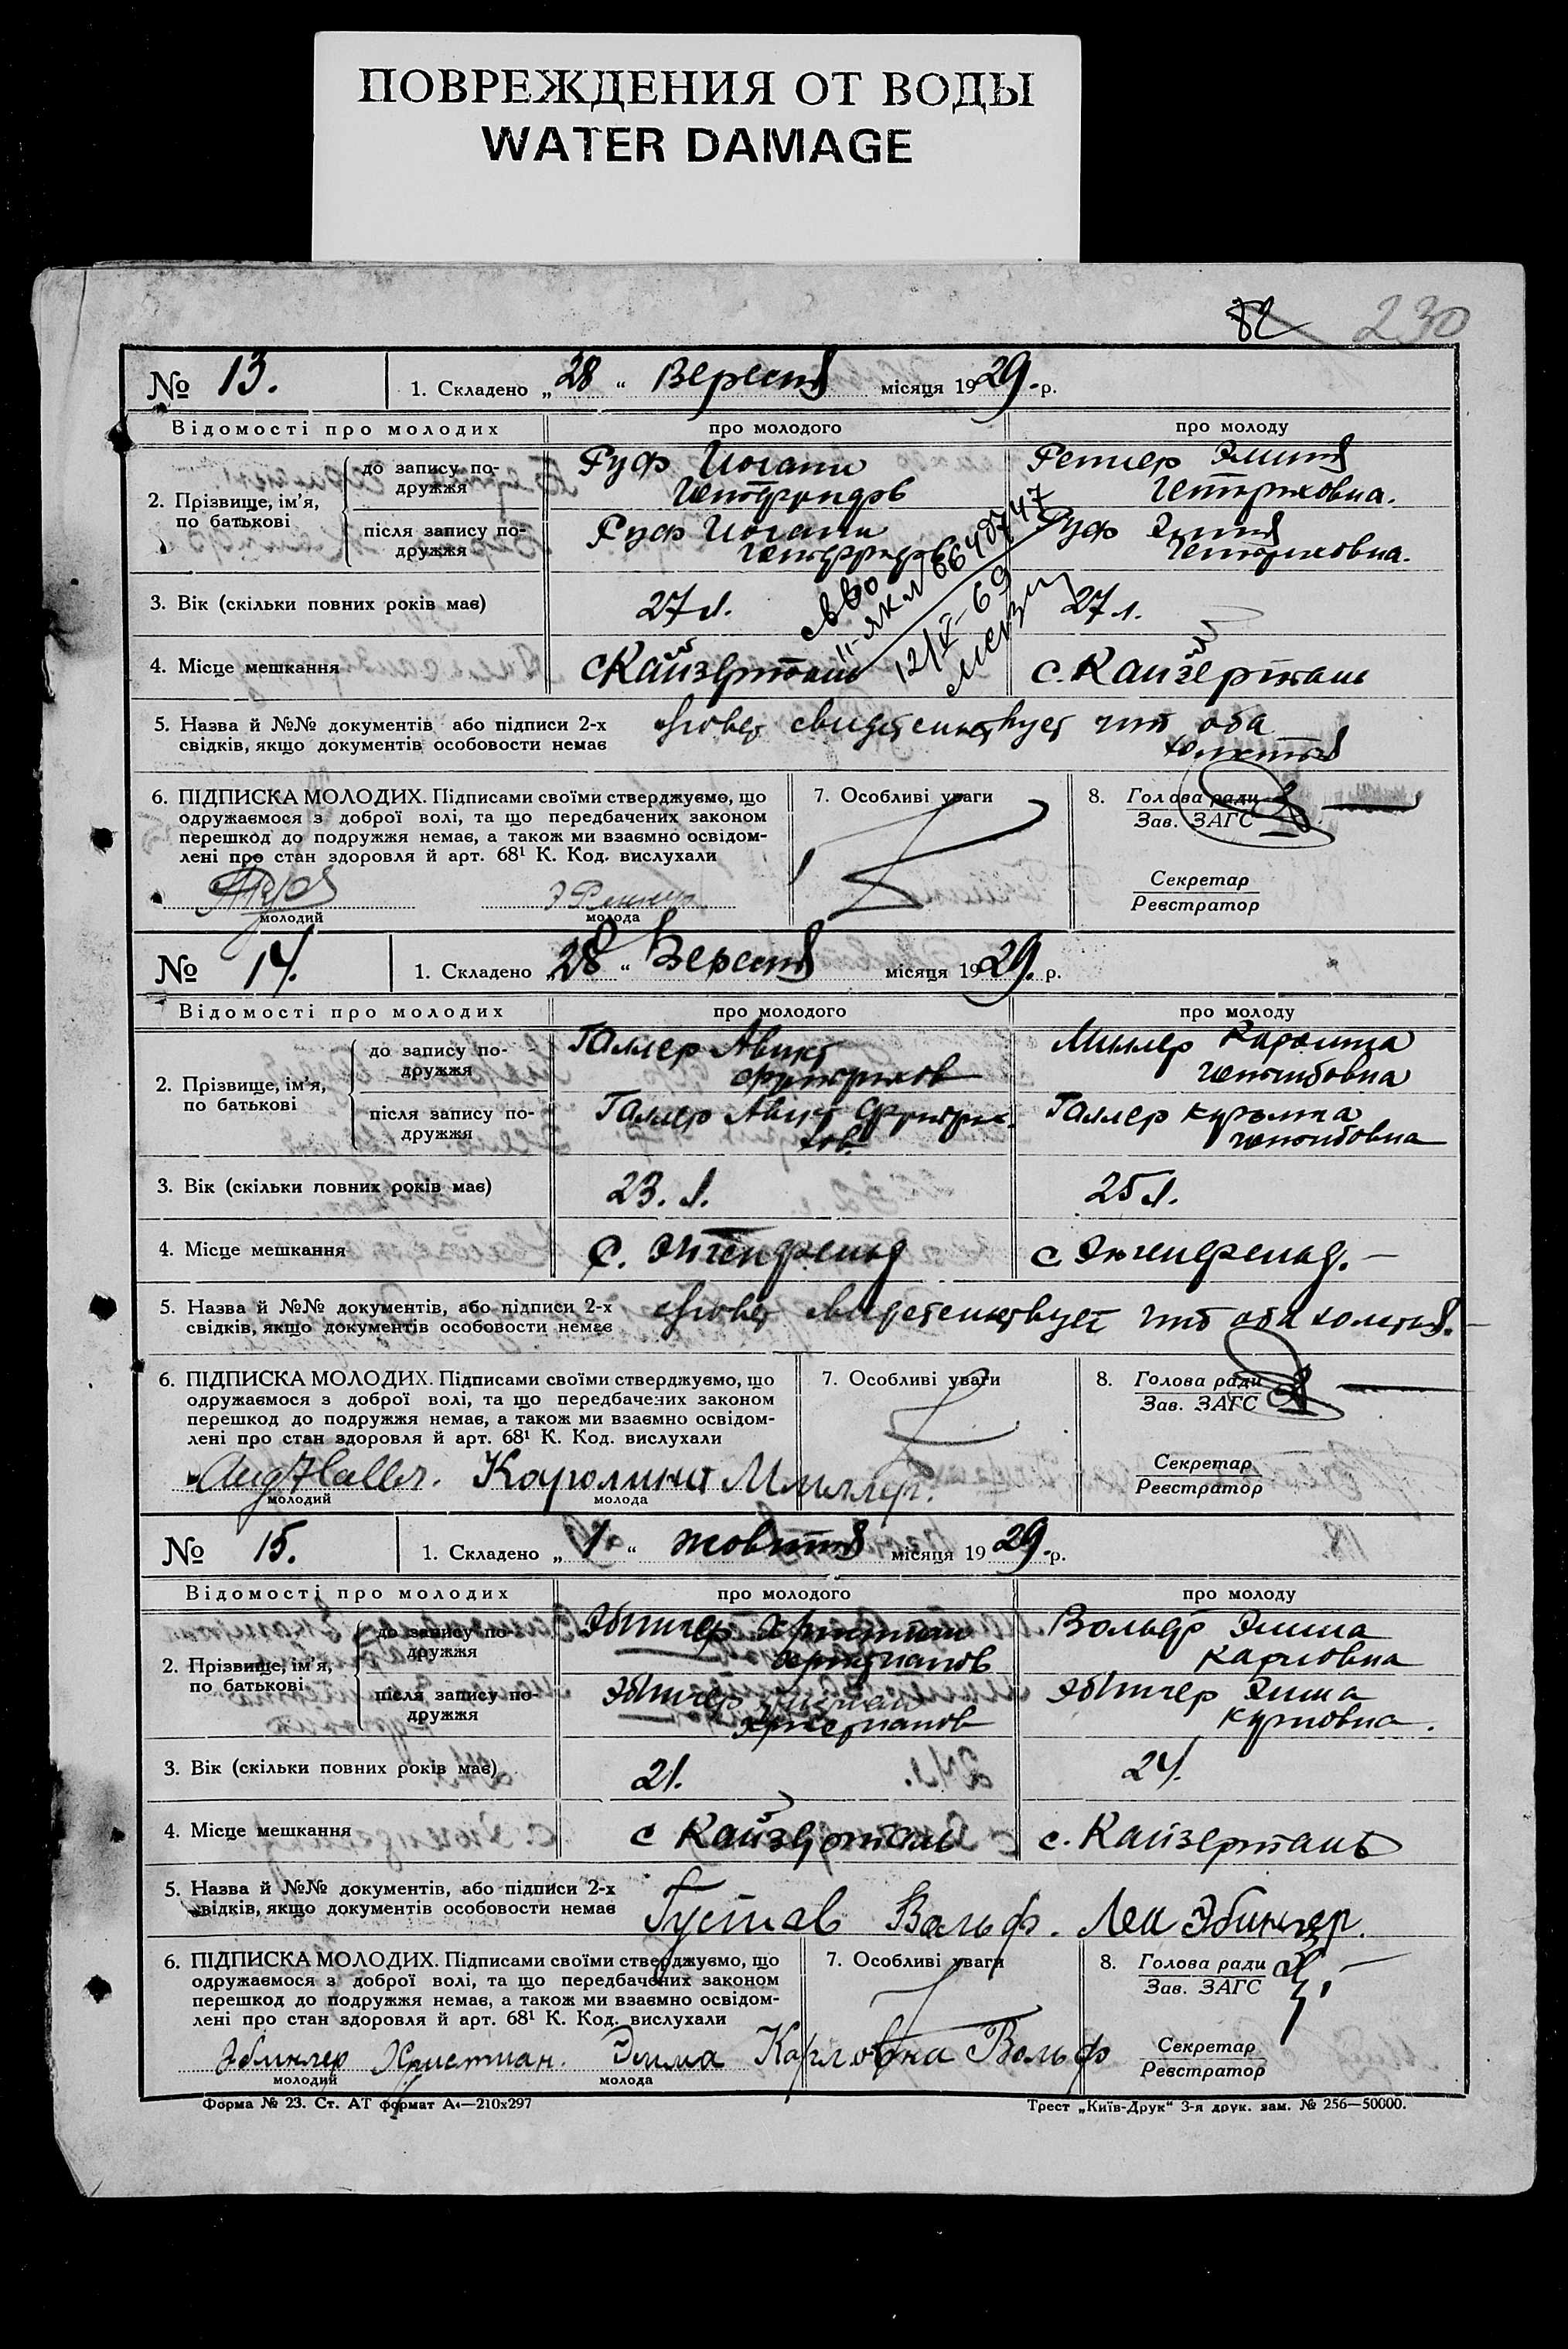 ПОВРЕЖДЕНИЯ ОТ ВОДЫ
WATER DAMAGE
82 230
№ 13. 1. Складено „28“ Вересня місяця 1929. р.
Відомості про молодих про молодого про молоду
2. Прізвище, ім'я, по батькові
до запису подружжя Руф Иоганн Реплер Эмилия
Готфридов Генриховна.
після запису подружжя Руф Иоганн Руф Эмилия
Готфридов Генриховна.
3. Вік (скільки повних років має) 27 л. 27 л.
12/V-69
4. Місце мешкання с Кайзерталь с. Кайзерталь
5. Назва й №№ документів або підписи 2-х свідків, якщо документів особовости немає свидетельствует что оба
холостые
6. ПІДПИСКА МОЛОДИХ. Підписами своїми стверджуємо, що
одружаємося з доброї волі, та що передбачених законом
перешкод до подружжя немає, а також ми взаємно освідом-
лені про стан здоровля й арт. 68¹ К. Код. вислухали
молодий молода
7. Особливі уваги
8. Голова ради
Зав. ЗАГС
Секретар
Реєстратор
№ 14. 1. Складено „28“ Вересня місяця 1929. р.
Відомості про молодих про молодого про молоду
2. Прізвище, ім'я, по батькові
до запису подружжя Галлер Август Миллер Каролина
Фридрихов Готлибовна
після запису подружжя Галлер Август Фридри- Галлер Каролина
хов. Готлибовна
3. Вік (скільки повних років має) 23. л. 25 л.
4. Місце мешкання с. Эйгенфельд с. Эйгенфельд.
5. Назва й №№ документів, або підписи 2-х свідків, якщо документів особовости немає свидетельствует что оба холостые.
6. ПІДПИСКА МОЛОДИХ. Підписами своїми стверджуємо, що
одружаємося з доброї волі, та що передбачених законом
перешкод до подружжя немає, а також ми взаємно освідом-
лені про стан здоровля й арт. 68¹ К. Код. вислухали
Aug Haller. Каролина Миллер.
молодий молода
7. Особливі уваги
8. Голова ради
Зав. ЗАГС
Секретар
Реєстратор
№ 15. 1. Складено „1“ жовтня місяця 1929. р.
Відомості про молодих про молодого про молоду
2. Прізвище, ім'я, по батькові
до запису подружжя Эбингер Христиан Вольф Эмма
Христианов Карловна
після запису подружжя Эбингер Христиан Эбингер Эмма
Христианов Карловна.
3. Вік (скільки повних років має) 21. 24.
4. Місце мешкання с Кайзерталь с. Кайзерталь
5. Назва й №№ документів, або підписи 2-х свідків, якщо документів особовости немає Густав Вольф. Леи Эбингер.
6. ПІДПИСКА МОЛОДИХ. Підписами своїми стверджуємо, що
одружаємося з доброї волі, та що передбачених законом
перешкод до подружжя немає, а також ми взаємно освідом-
лені про стан здоровля й арт. 68¹ К. Код. вислухали
Эбингер Християн. Эмма Карловна Вольф
молодий молода
7. Особливі уваги
8. Голова ради
Зав. ЗАГС
Секретар
Реєстратор
Форма № 23. Ст. АТ формат А₄—210х297 Трест „Київ-Друк“ 3-я друк. зам. № 256—50000.